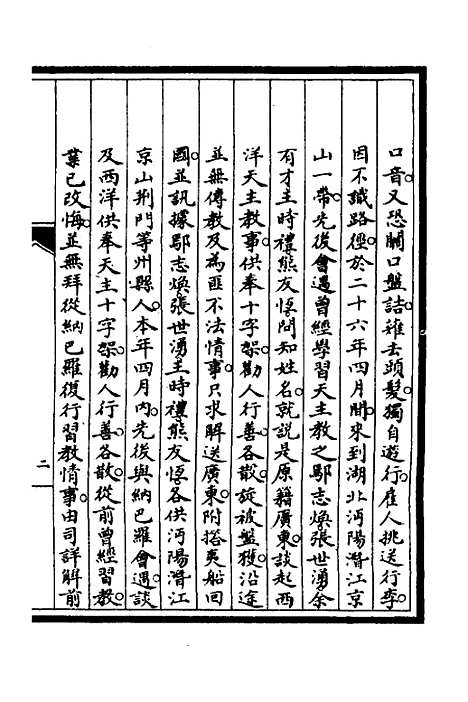 口音又恐關口盤詰薙去頭髮獨自遊行雇人挑送行李
因不識路徑於二十六年四月間來到湖北沔陽潛江京
山一帶先後會遇曾經學習天主教之鄢志煥張世湧余
有才王時禮熊友恆問知姓名就説是原籍廣東談起西
洋天主教事供奉十字架勸人行善各散旋被盤獲沿途
並無傳教及為匪不法情事只求解送廣東附搭夷船回
國並訊據鄢志煥張世湧王時禮熊友恆各供沔陽潛江
京山荆門等州縣人本年四月內先後與納巴羅會遇談
及西洋供奉天主十字架勸人行善各散從前曾經習教
業已改悔並無拜從納巴羅復行習教情事由司詳解前
二